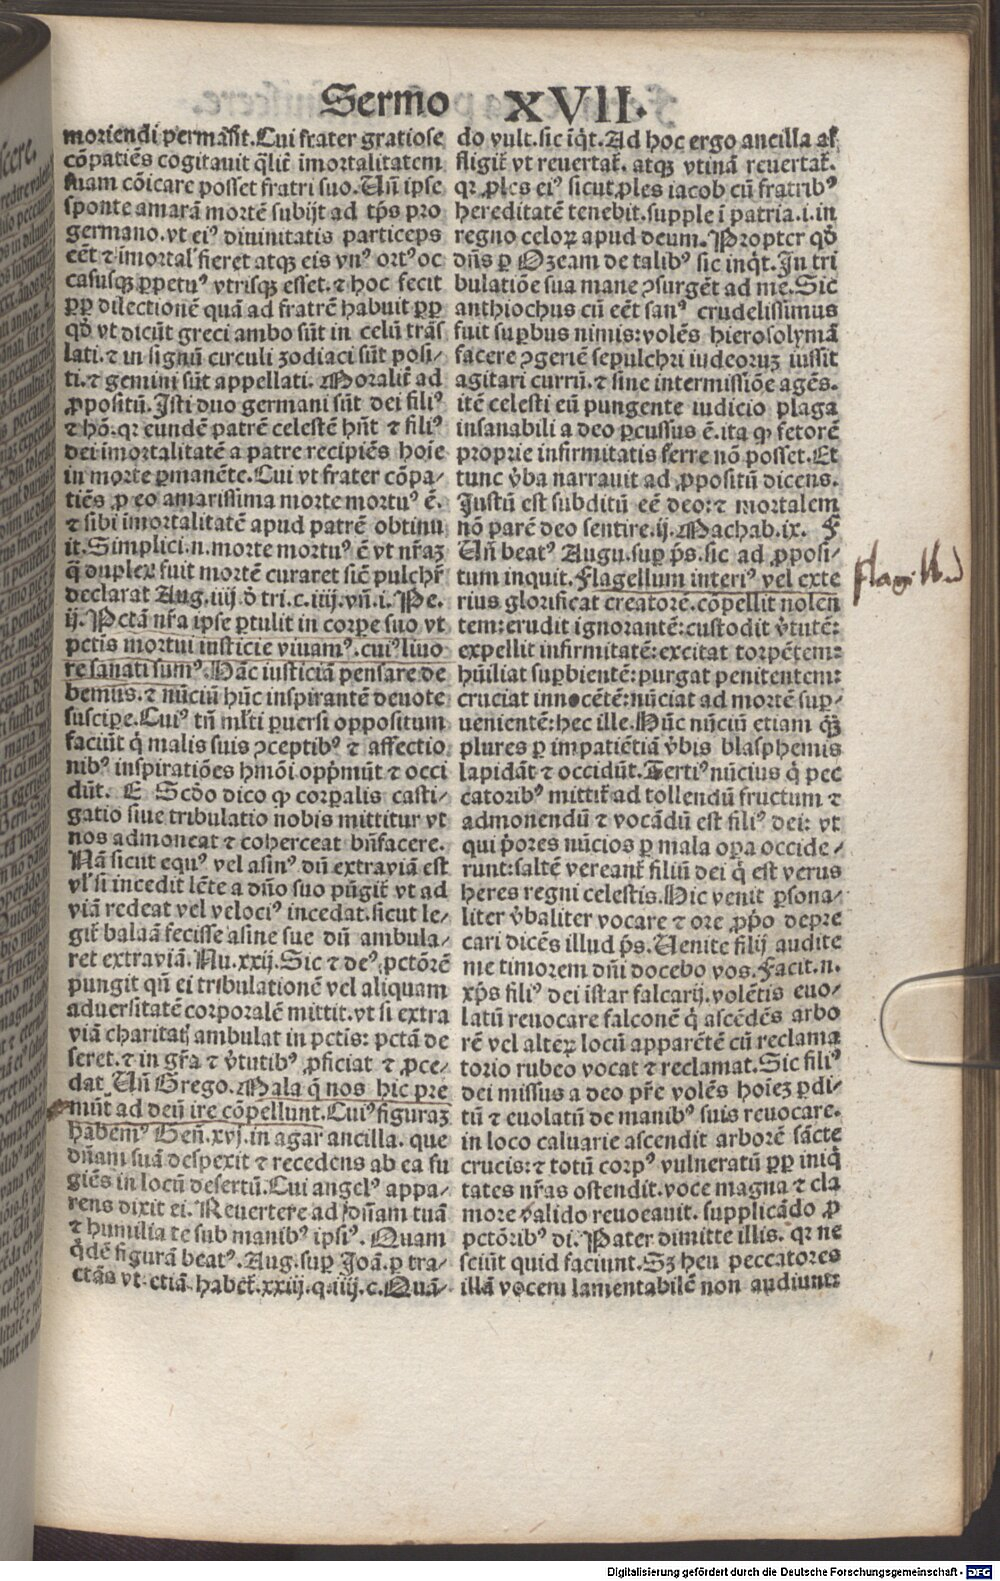 Sermo XVII.
moriendi permãsit. Cui frater gratiose
cõpatiẽs cogitauit qͥlit̃ imortalitatem
suam cõicare posset fratri suo. Uñ ipse
sponte amarã mortẽ subijt ad tp̃s pro
germano. vt eiꝰ diuinitatis particeps
eẽt ⁊ imortal' fieret atqꝫ eis vnꝰ ortꝰ oc
casusqꝫ ꝑpetuꝰ vtrisqꝫ esset. ⁊ hoc fecit
ꝓp̃ dilectionẽ quã ad fratrẽ habuit ꝓp̃
qd̃ vt dicũt greci ambo sũt in celũ trãs
lati. ⁊ in signũ circuli zodiaci sũt posi⸗
ti. ⁊ gemini sũt appellati. Moralit̃ ad
ꝓpositũ. Isti duo germani sũt dei filiꝰ
⁊ hõ: qꝛ eundẽ patrẽ celestẽ hñt ⁊ filiꝰ
dei imortalitatẽ a patre recipiẽs hoĩe
in morte ꝑmanẽte. Cui vt frater cõpa⸗
tiẽs ꝓ eo amarissima morte mortuꝰ ẽ.
⁊ sibi imortalitatẽ apud patrẽ obtinu
it. Simplici .n. morte mortuꝰ ẽ vt nr̃aꝫ
q̃ duplex fuit mortẽ curaret sic̃ pulchr̃
declarat Aug. iiij. ď tri. c. iiij. vñ. i. Pe.
ij. Pctã nr̃a ipse ꝑtulit in corꝑe suo vt
pctis mortui iusticie viuamꝰ. cuiꝰ liuo
re sanati sumꝰ. Hãc iusticiã pensare de
bemus. ⁊ nũciũ hũc inspirantẽ deuote
suscipe. Cuiꝰ tñ ml̃ti ꝑuersi oppositum
faciũt q̇ malis suis ꝯceptibꝰ ⁊ affectio
nibꝰ inspiratiões hmõi opp̃mũt ⁊ occi
dũt. E Scďo dico ꝙ corꝑalis casti⸗
gatio siue tribulatio nobis mittitur vt
nos admoneat ⁊ coherceat bñfacere.
Nã sicut equꝰ vel asinꝰ dũ extra viã est
vl' si incedit lẽte a dño suo pũgit̃ vt ad
viã redeat vel velociꝰ incedat. sicut le⸗
git̃ balaã fecisse asine sue dũ ambula⸗
ret extra viã. Nu. xxij. Sic ⁊ deꝰ pctõrẽ
pungit qñ ei tribulationẽ vel aliquam
aduersitatẽ corporalẽ mittit. vt si extra
viã charitat̃ ambulat in pctis: pctã de
seret. ⁊ in gr̃a ⁊ ṽtutibꝰ ꝓficiat ⁊ ꝓce⸗
dat. Uñ Grego. Mala q̃ nos hic pre
mũt ad deũ ire cõpellunt. Cuiꝰ figuraꝫ
habemꝰ Geñ. xvj. in agar ancilla. que
dñam suã despexit ⁊ recedens ab ea fu
giẽs in locũ desertũ. Cui angelꝰ appa⸗
rens dixit ei. Reuertere ad dñam tuã
⁊ humilia te sub manibꝰ ipsiꝰ. Quam
q̇dẽ figurã beatꝰ. Aug. suꝑ Joã. ꝑ tra⸗
ctãs vt etiã habet̃. xxiij. q. iiij. c. Quã⸗
do vult. sic iq̃t. Ad hoc ergo ancilla af
fligit̃ vt reuertat̃. atqꝫ vtinã reuertat̃.
qꝛ ꝓles eiꝰ sicut ꝓles iacob cũ fratribꝰ
hereditatẽ tenebit. supple ĩ patria .i. in
regno celoꝝ apud deum. Propter qd̃
dñs ꝑ Ozeam de talibꝰ sic inq̃t. In tri
bulatiõe sua mane ꝯsurgẽt ad me. Sic
anthiochus cũ eẽt sanꝰ crudelissimus
fuit suꝑbus nimis: volẽs hierosolymã
facere ꝯgeriẽ sepulchri iudeoruꝫ iussit
agitari currũ. ⁊ sine intermissiõe agẽs.
itẽ celesti eũ pungente iudicio plaga
insanabili a deo ꝑcussus ẽ. ita ꝙ fetorẽ
proprie infirmitatis ferre nõ posset. Et
tunc ṽba narrauit ad ꝓpositũ dicens.
Justũ est subditũ eẽ deo: ⁊ mortalem
nõ parẽ deo sentire. ij. Machab. ix. F
Uñ beatꝰ Augu. suꝑ p̃s. sic ad ꝓposi⸗
tum inquit. Flagellum interiꝰ vel exte
rius glorificat creatorẽ. cõpellit nolen
tem: erudit ignorantẽ: custodit ṽtutẽ:
expellit infirmitatẽ: excitat torpẽtem:
hũiliat suꝑbientẽ: purgat penitentem:
cruciat innocẽtẽ: nũciat ad mortẽ suꝑ⸗
uenientẽ: hec ille. Hũc nũciũ etiam qꝫ̃
plures ꝑ impatiẽtiã ṽbis blasphemis
lapidãt ⁊ occidũt. Tertiꝰ nũcius q̇ pec
catoribꝰ mittit̃ ad tollendũ fructum ⁊
admonendũ ⁊ vocãdũ est filiꝰ dei: vt
qui p̃ores nũcios ꝑ mala oꝑa occide⸗
runt: saltẽ vereant̃ filiũ dei q̇ est verus
heres regni celestis. Hic venit ꝑsona⸗
liter ṽbaliter vocare ⁊ ore ꝓp̃o depre
cari dicẽs illud p̃s. Uenite filij audite
me timorem dñi docebo vos. Facit .n.
xp̃s filiꝰ dei istar falcarij. volẽtis euo⸗
latũ reuocare falconẽ q̇ ascẽdẽs arbo
rẽ vel alteꝝ locũ apparẽtẽ cũ reclama
torio rubeo vocat ⁊ reclamat. Sic filiꝰ
dei missus a deo pr̃e volẽs hoĩeꝫ ꝑdi⸗
tũ ⁊ euolatũ de manibꝰ suis reuocare.
in loco caluarie ascendit arborẽ sãcte
crucis: ⁊ totũ corpꝰ vulneratũ ꝓp̃ iniq̇
tates nr̃as ostendit. voce magna ⁊ cla
more valido reuocauit. supplicãdo ꝓ
pctõribꝰ di. Pater dimitte illis. qꝛ ne
sciũt quid faciunt. Sꝫ heu peccatores
illã vocem lamentabilẽ non audiunt:
flagellũ
Digitalisierung gefördert durch die Deutsche Forschungsgemeinschaft - DFG